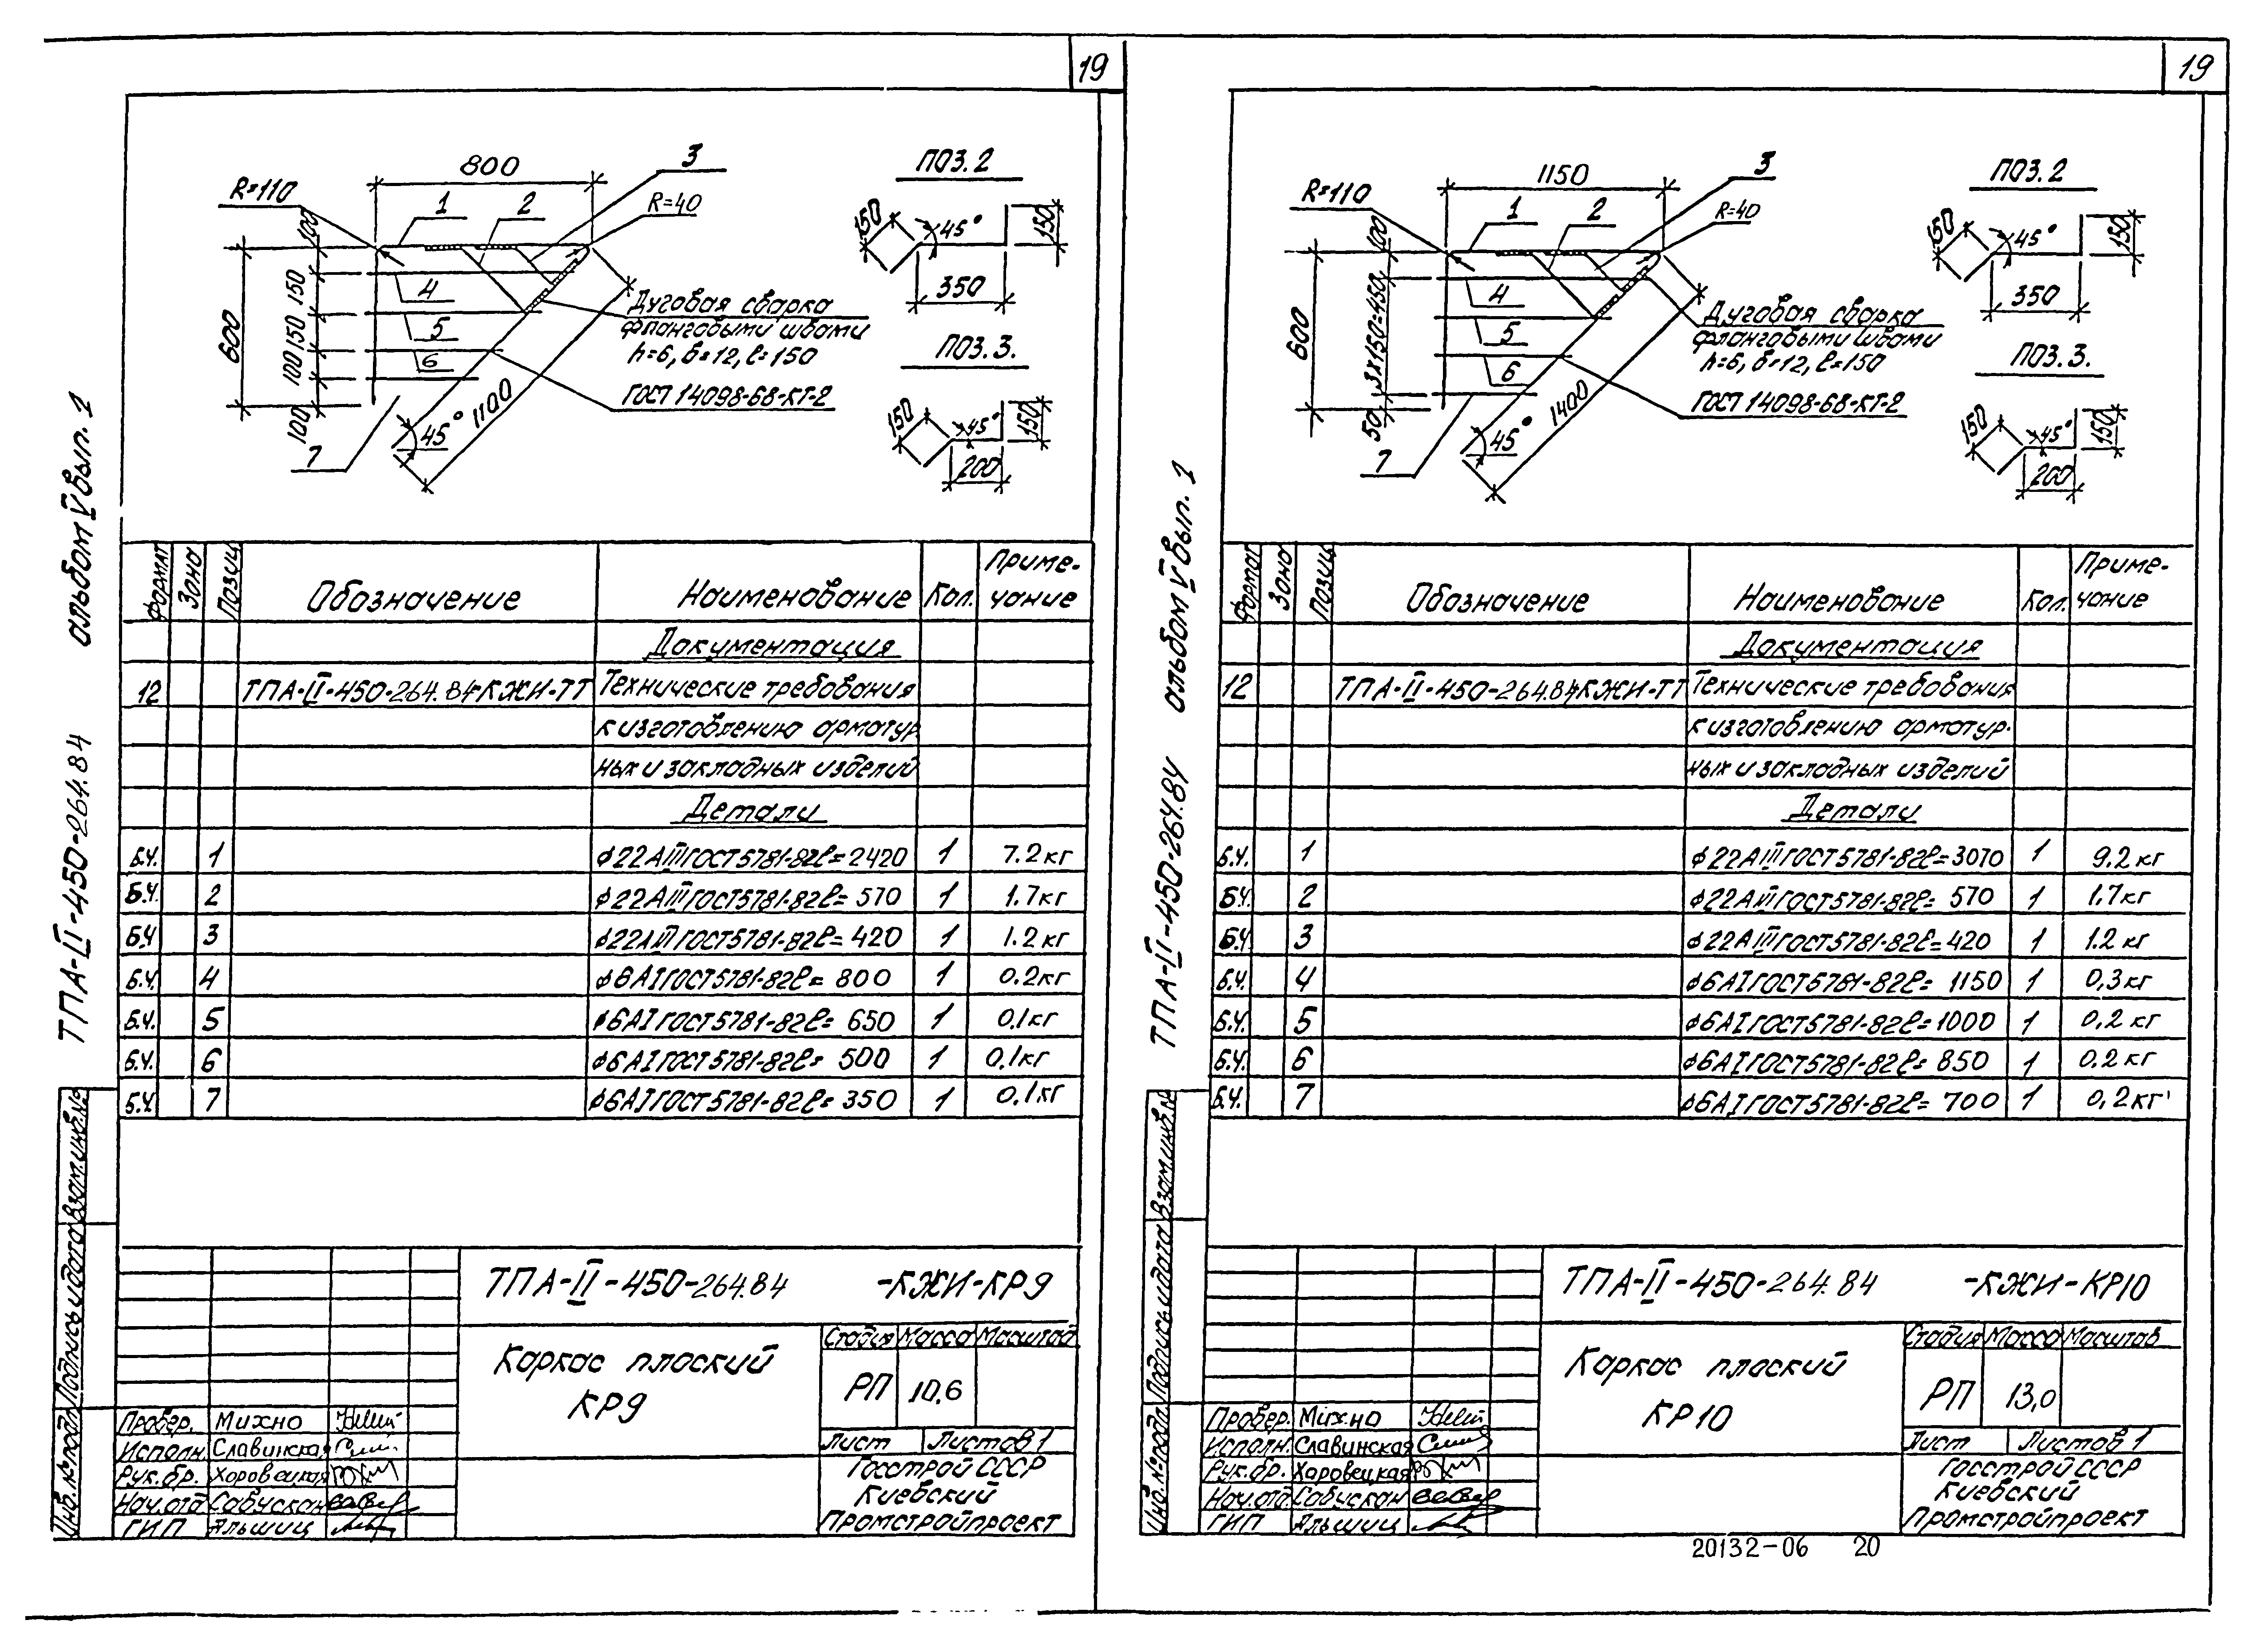 19
800
3
R=110
1
2
R=40
100
150
150
100
100
600
4
5
6
7
45°
1100
Дуговая сварка
фланговыми швами
h=6, б=12, ℓ=150
ГОСТ 14098-68-КТ-2
ПОЗ. 2
150
45°
150
350
ПОЗ. 3.
150
45°
150
200
альбом V вып. 1
ТПА-II-450-264.84
Формат Зона Позиц. Обозначение Наименование Кол. Приме-
чание
Документация
12 ТПА-II-450-264.84 КЖИ-ТТ Технические требования
к изготовлению арматур-
ных и закладных изделий
Детали
Б.Ч. 1 ф22АIII ГОСТ 5781-82 ℓ=2420 1 7.2 кг
Б.Ч. 2 ф22АIII ГОСТ 5781-82 ℓ= 570 1 1.7 кг
Б.Ч. 3 ф22АIII ГОСТ 5781-82 ℓ= 420 1 1.2 кг
Б.Ч. 4 ф6АI ГОСТ 5781-82 ℓ= 800 1 0.2 кг
Б.Ч. 5 ф6АI ГОСТ 5781-82 ℓ= 650 1 0.1 кг
Б.Ч. 6 ф6АI ГОСТ 5781-82 ℓ= 500 1 0.1 кг
Б.Ч. 7 ф6АI ГОСТ 5781-82 ℓ= 350 1 0.1 кг
Инв. № подл. Подпись и дата Взам. инв. №
ТПА-II-450-264.84 -КЖИ-КР9
Каркас плоский
КР9
Стадия Масса Масштаб
РП 10,6
Лист Листов 1
Провер. Михно
Исполн. Славинская
Рук. бр. Харовецкая
Нач. отд. Сабускан
ГИП Альшиц
Госстрой СССР
Киевский
Промстройпроект
19
1150
3
R=110
1
2
R=40
100
3х150=450
50
600
4
5
6
7
45°
1400
Дуговая сварка
фланговыми швами
h=6, б=12, ℓ=150
ГОСТ 14098-68-КТ-2
ПОЗ. 2
150
45°
150
350
ПОЗ. 3.
150
45°
150
200
альбом V вып. 1
ТПА-II-450-264.84
Формат Зона Позиц. Обозначение Наименование Кол. Приме-
чание
Документация
12 ТПА-II-450-264.84 КЖИ-ТТ Технические требования
к изготовлению арматур-
ных и закладных изделий
Детали
Б.Ч. 1 ф22АIII ГОСТ 5781-82 ℓ=3070 1 9.2 кг
Б.Ч. 2 ф22АIII ГОСТ 5781-82 ℓ= 570 1 1.7 кг
Б.Ч. 3 ф22АIII ГОСТ 5781-82 ℓ=420 1 1.2 кг
Б.Ч. 4 ф6АI ГОСТ 5781-82 ℓ= 1150 1 0,3 кг
Б.Ч. 5 ф6АI ГОСТ 5781-82 ℓ=1000 1 0.2 кг
Б.Ч. 6 ф6АI ГОСТ 5781-82 ℓ= 850 1 0.2 кг
Б.Ч. 7 ф6АI ГОСТ 5781-82 ℓ= 700 1 0,2 кг
Инв. № подл. Подпись и дата Взам. инв. №
ТПА-II-450-264.84 -КЖИ-КР10
Каркас плоский
КР10
Стадия Масса Масштаб
РП 13,0
Лист Листов 1
Провер. Михно
Исполн. Славинская
Рук. бр. Харовецкая
Нач. отд. Сабускан
ГИП Альшиц
Госстрой СССР
Киевский
Промстройпроект
20132-06 20